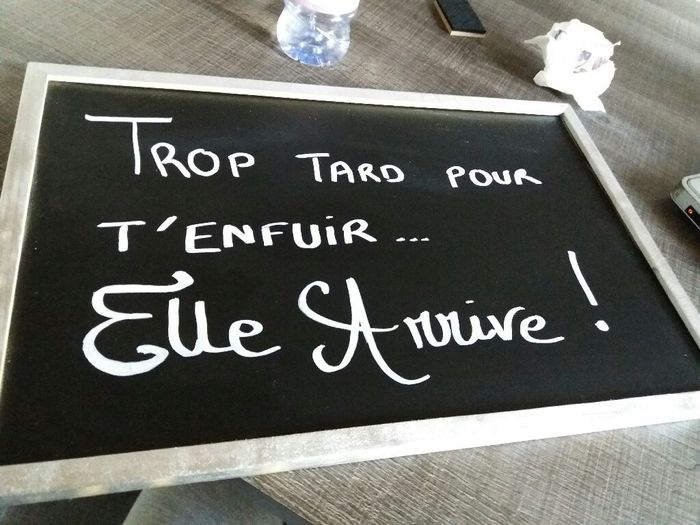 TROP TARD POUR
T'ENFUIR...
Elle Arrive !